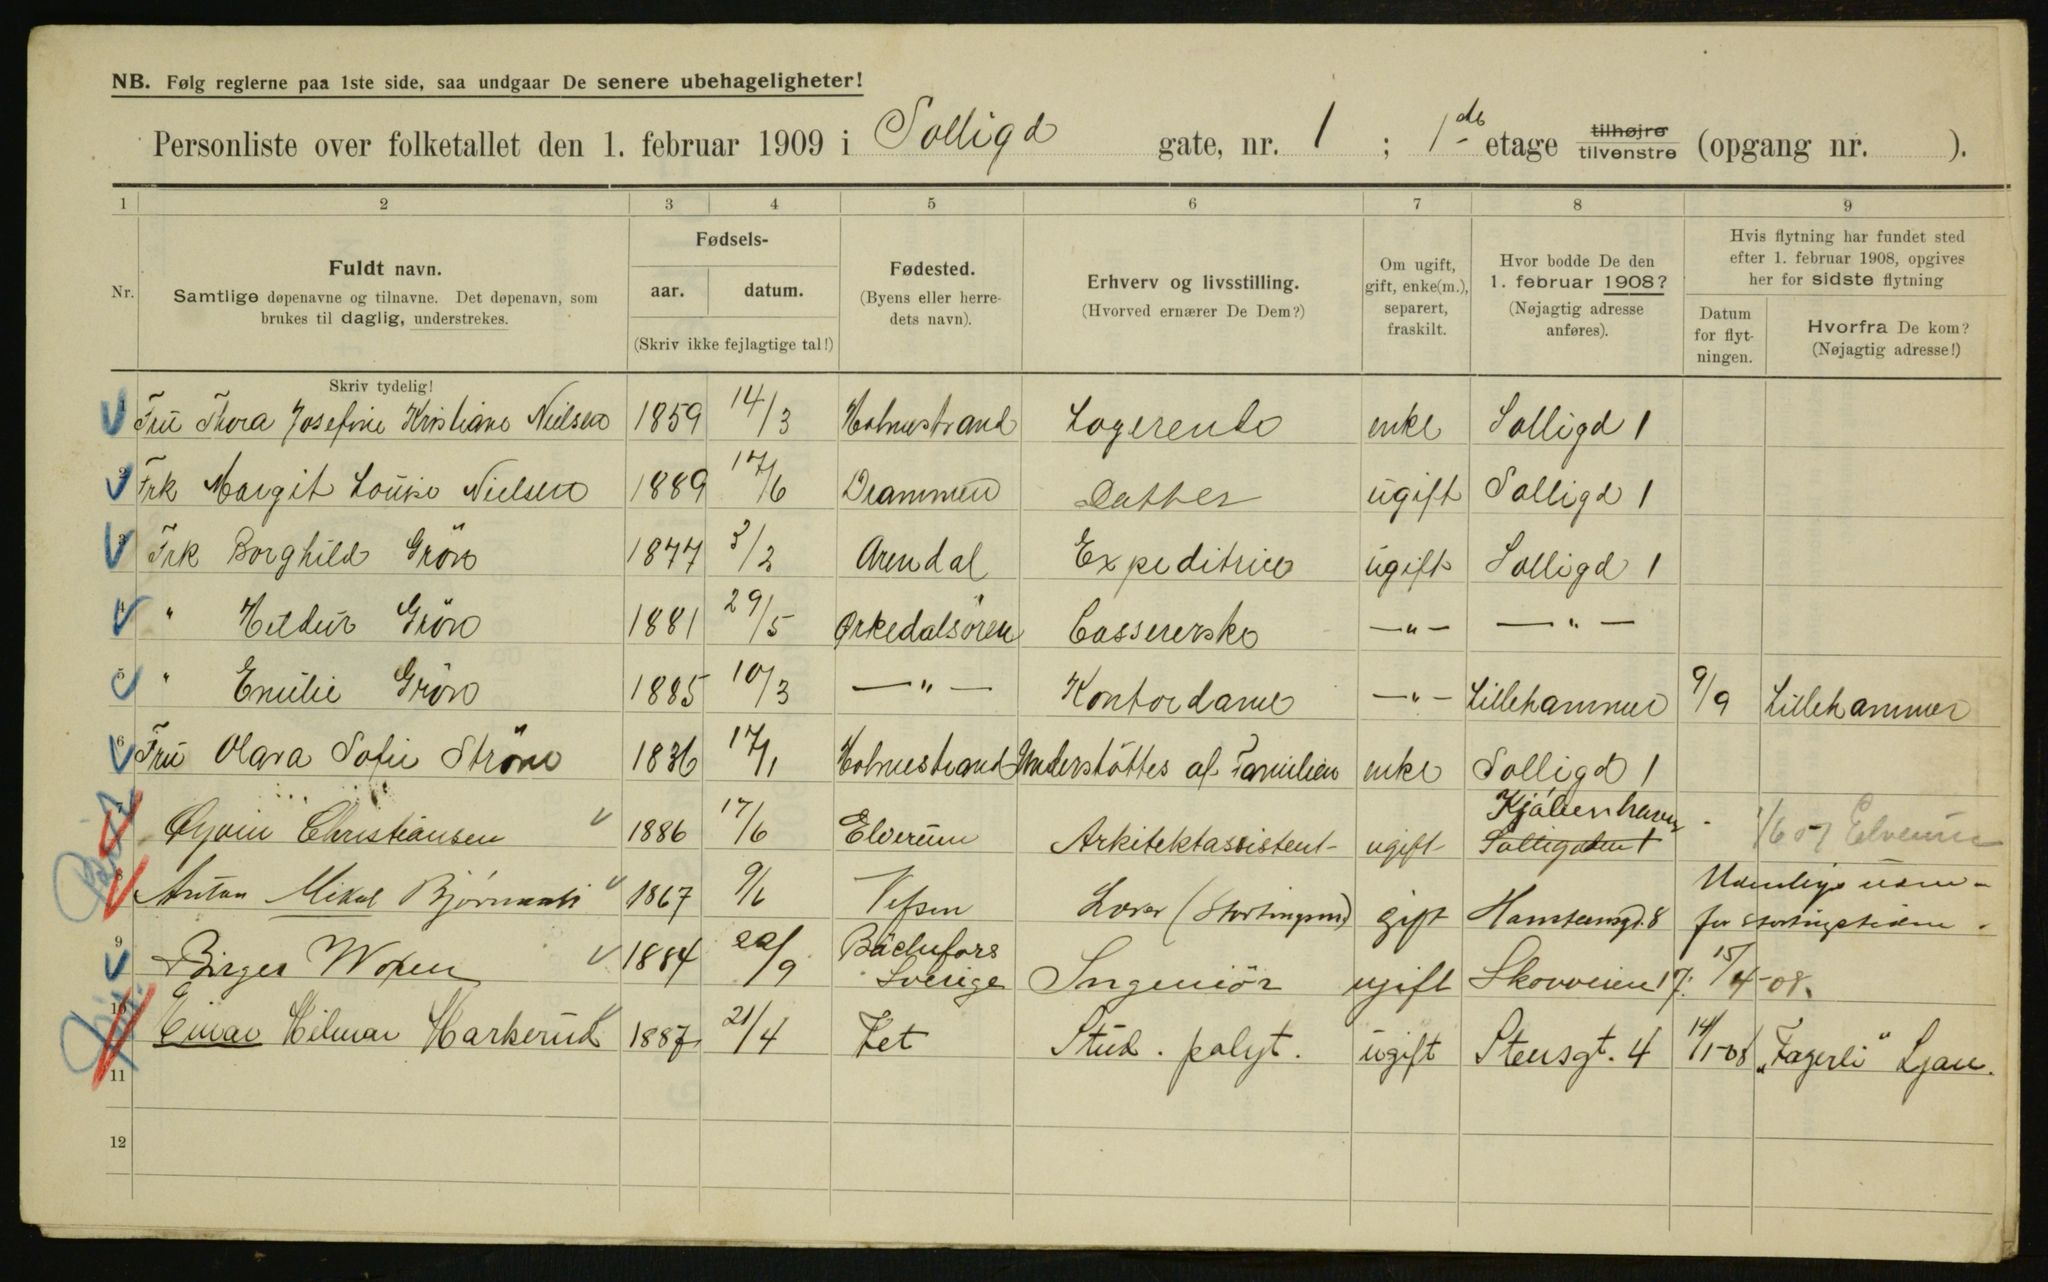 NB. Følg reglerne paa 1ste side, saa undgaar De senere ubehageligheter!
Personliste over folketallet den 1. februar 1909 i Solligd gate, nr. 1 ; 1 etage tilhøjre tilvenstre (opgang nr. ).
1 2 3 4 5 6 7 8 9
Nr.
Fuldt navn.
Samtlige døpenavne og tilnavne. Det døpenavn, som
brukes til daglig, understrekes.
Skriv tydelig!
Fødsels-
aar. datum.
(Skriv ikke fejlagtige tal!)
Fødested.
(Byens eller herre-
dets navn).
Erhverv og livsstilling.
(Hvorved ernærer De Dem?)
Om ugift,
gift, enke(m.),
separert,
fraskilt.
Hvor bodde De den
1. februar 1908?
(Nøjagtig adresse
anføres).
Hvis flytning har fundet sted
efter 1. februar 1908, opgives
her for sidste flytning
Datum
for flyt-
ningen.
Hvorfra De kom?
(Nøjagtig adresse!)
1 Fru Thora Josefine Kristiane Nielsen 1859 14/3 Holmestrand Logerende enke Solligd 1
2 Frk Margit Louise Nielsen 1889 17/6 Drammen Datter ugift Solligd 1
3 Frk Borghild Grön 1877 3/2 Arendal Expeditrice ugift Solligd 1
4 " Heldur Grön 1881 29/5 Orkedalsören Cassererske —"— —"—
5 " Emilie Grön 1885 10/3 —"— Kontordame —"— Lillehammer 9/9 Lillehammer
6 Fru Olava Sofie Ström 1836 17/1 Holmestrand Understöttes af Familien enke Solligd 1
7 Christiansen 1886 17/6 Elverum Arkitektassistent ugift Kjøbenhavn Solligaden 1 Elverum
8 Anton Mikal 1867 9/6 Vefsen (Stortingsmd) gift 8 for stortingstiden.
9 Birger Woxen 1884 22/9 Bäckefors Sverige Ingeniör ugift Skovveien 17. 15/4-08.
10 Einar Hilmar Harkerud 1887 21/4 Fet Stud. polyt. ugift Stensgt. 4 14/1-08 "Fagerli" Ljan.
11
12